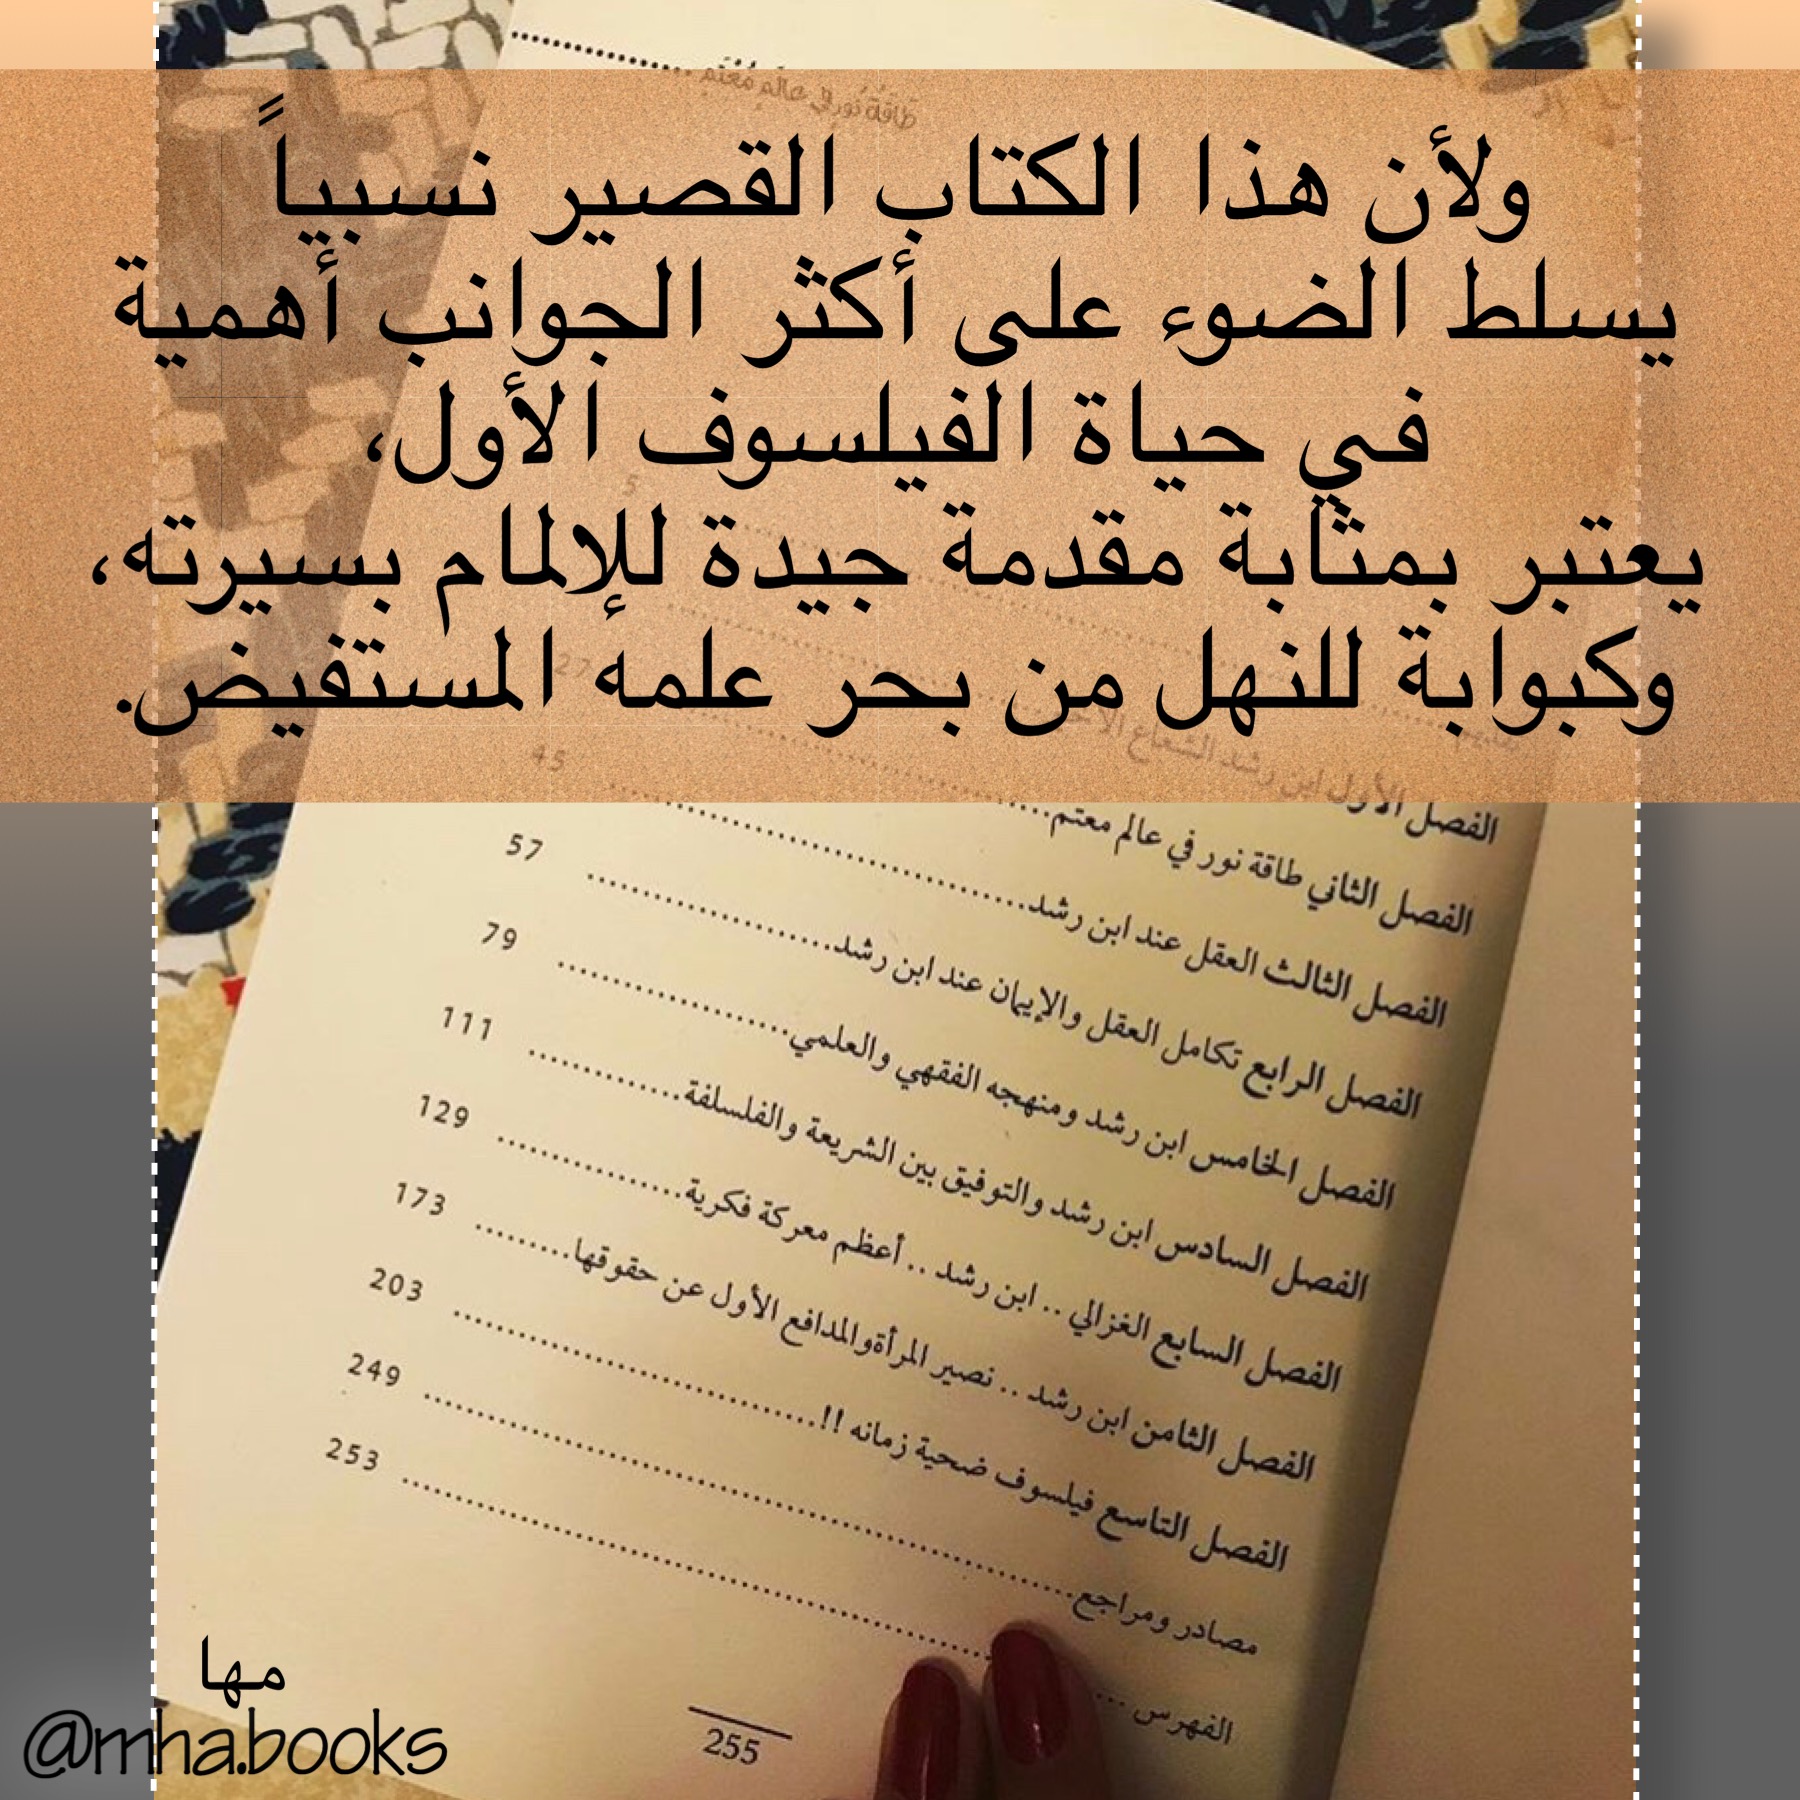 طاقة نور في عالم معتم
ولأن هذا الكتاب القصير نسبياً
يسلط الضوء على أكثر الجوانب أهمية
في حياة الفيلسوف الأول،
يعتبر بمثابة مقدمة جيدة للإلمام بسيرته،
وكبوابة للنهل من بحر علمه المستفيض.
5
27
الفصل الأول ابن رشد الشعاع
الفصل الثاني طاقة نور في عالم معتم.................... 45
الفصل الثالث العقل عند ابن رشد.................... 57
الفصل الرابع تكامل العقل والإيمان عند ابن رشد.................... 79
الفصل الخامس ابن رشد ومنهجه الفقهي والعلمي.................... 111
الفصل السادس ابن رشد والتوفيق بين الشريعة والفلسلفة............. 129
الفصل السابع الغزالي .. ابن رشد .. أعظم معركة فكرية................ 173
الفصل الثامن ابن رشد .. نصير المرأةوالمدافع الأول عن حقوقها......... 203
الفصل التاسع فيلسوف ضحية زمانه !!.................... 249
مصادر ومراجع.................... 253
الفهرس ...
255
مها
@mha.books